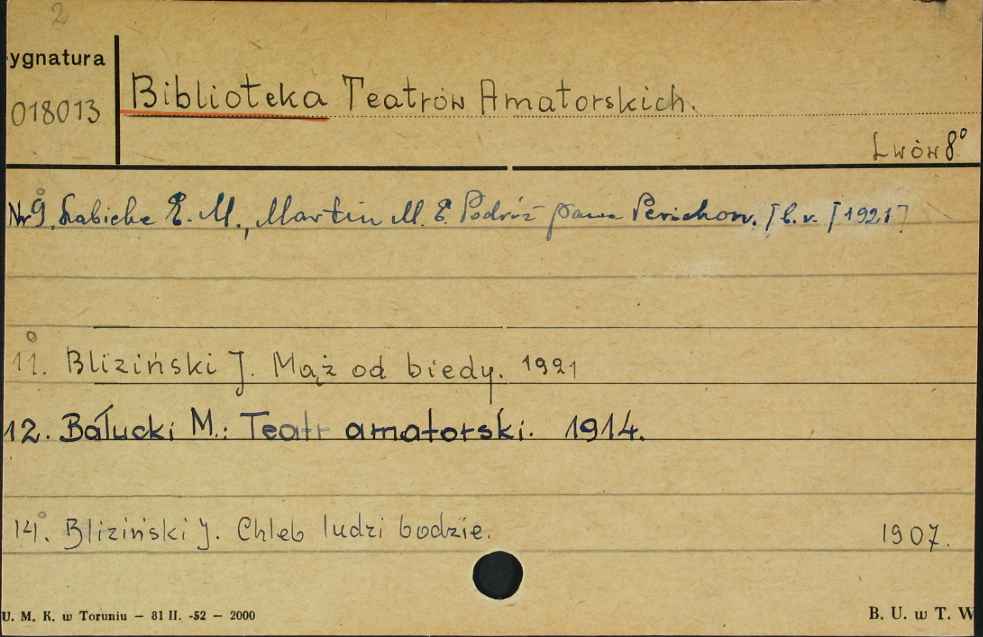 2
ygnatura
018013
Biblioteka Teatrów Amatorskich.
Lwów 8°
Nr 9. Labiche E. M., Martin M. E. Podróż pana Perichon. [b. r. [1921]
11. Bliziński J. Mąż od biedy. 1921
12. Bałucki M.: Teatr amatorski. 1914.
14. Bliziński J. Chleb ludzi bodzie. 1907.
U. M. K. w Toruniu — 81 II. -52 — 2000
B. U. w T. W